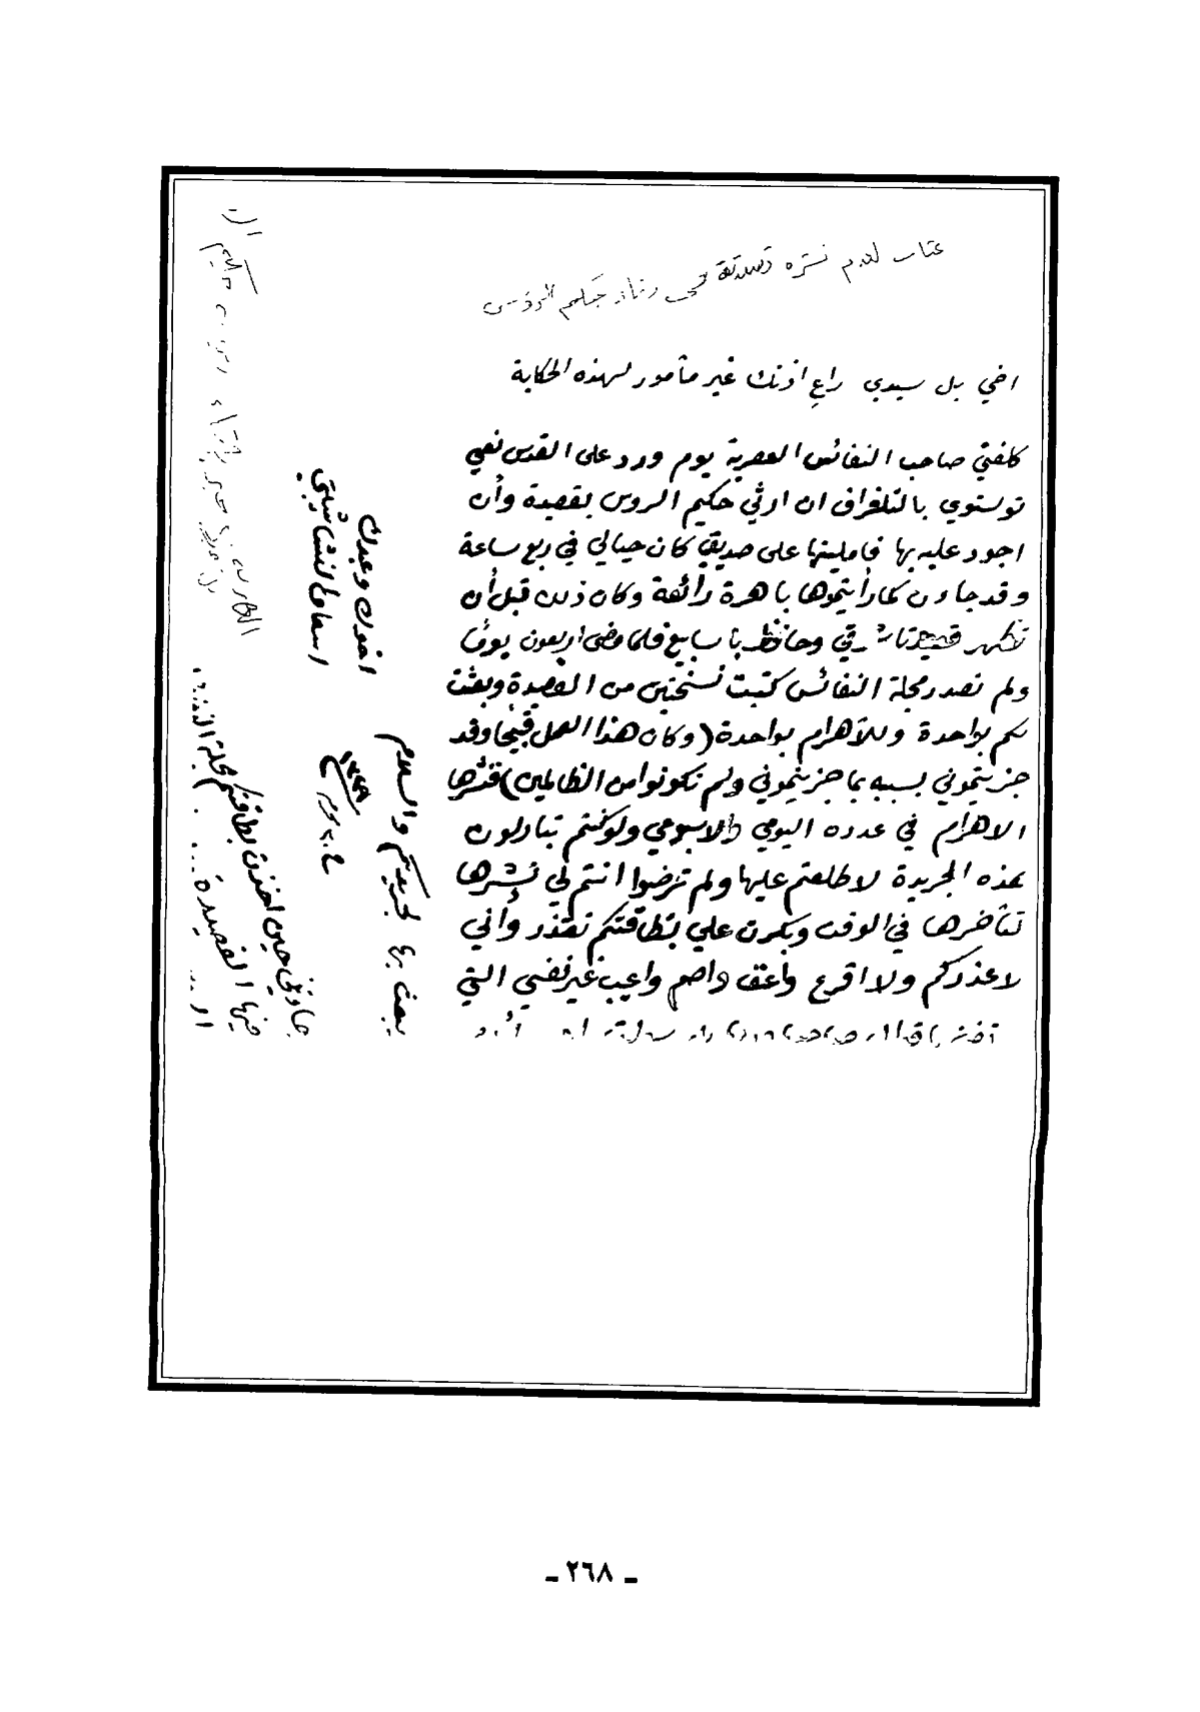 عتاب لعدم نشره قصيدته في رثاء حكيم الروس
اخي بل سيدي راعِ اذنك غير مأمور لهذه الحكاية
كلفني صاحب النفائس العصرية يوم ورد على القدس نعي
تولستوي بالتلغراف ان ارثي حكيم الروس بقصيدة وأن
اجود عليه بها فامليتها على صديق كان حيالي في ربع ساعة
وقد جاءت كما رأيتموها باهرة رائعة وكان ذلك قبل أن
تظهر قصيدتا شوقي وحافظ بأسابيع فلما مضى اربعون يوماً
ولم تصدر مجلة النفائس كتبت نسختين من القصيدة وبعثت
لكم بواحدة وللأهرام بواحدة (وكان هذا العمل قبيحاً وقد
جزيتموني بسببه بما جزيتموني ولم تكونوا من الظالمين) فنشرها
الاهرام في عدده اليومي والاسبوعي ولو كنتم تبادلون
هذه الجريدة لاطلعتم عليها ولم ترضوا انتم لي نشرها
لتأخرها في الوقت وبكرت علي بطاقتكم تعتذر وأني
لاعذركم ولا اقرع واعنف واصم واعيب غير نفسي التي
جاءني حين اخذت بطاقتكم مجلة
فيها القصيدة
يبعث بها لجريدتكم والسلام
٤ محرم ١٣٢٩
اخوك وعبدك
اسعاف النشاشيبي
- ٢٦٨ -